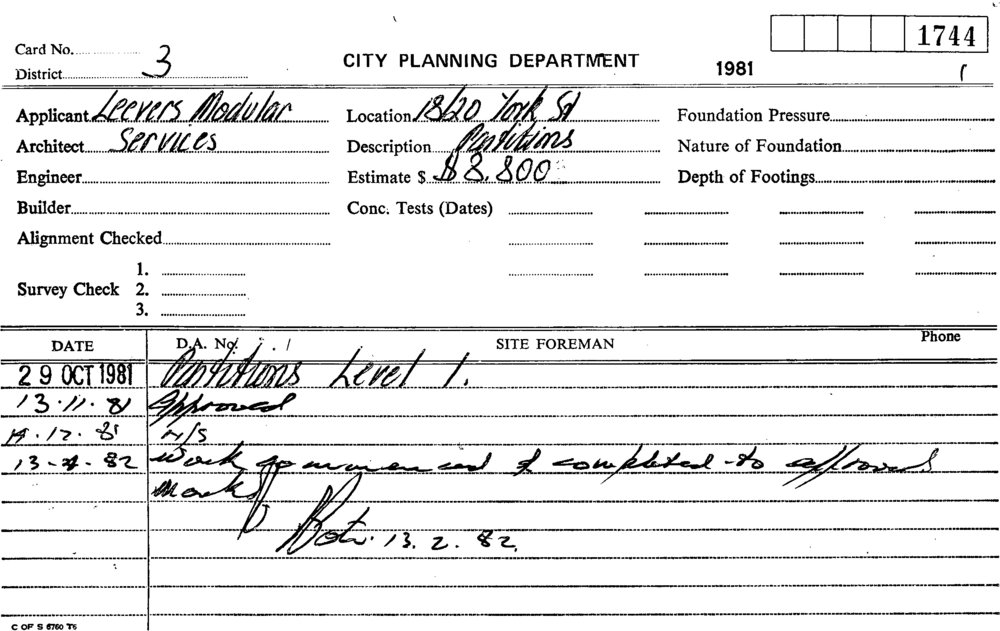 1744
Card No.
District 3
CITY PLANNING DEPARTMENT
1981
Applicant Leevers Modular
Location 18/20 York St
Foundation Pressure
Architect Services
Description Partitions
Nature of Foundation
Engineer
Estimate $ $8,800
Depth of Footings
Builder
Conc. Tests (Dates)
Alignment Checked
1.
Survey Check 2.
3.
DATE D.A. No. SITE FOREMAN Phone
29 OCT 1981 Partitions Level 1.
13.11.81 Approved
14.12.81 N/S
13-2-82 Work commenced & completed to approved
13.2.82.
C OF S 6760 T6